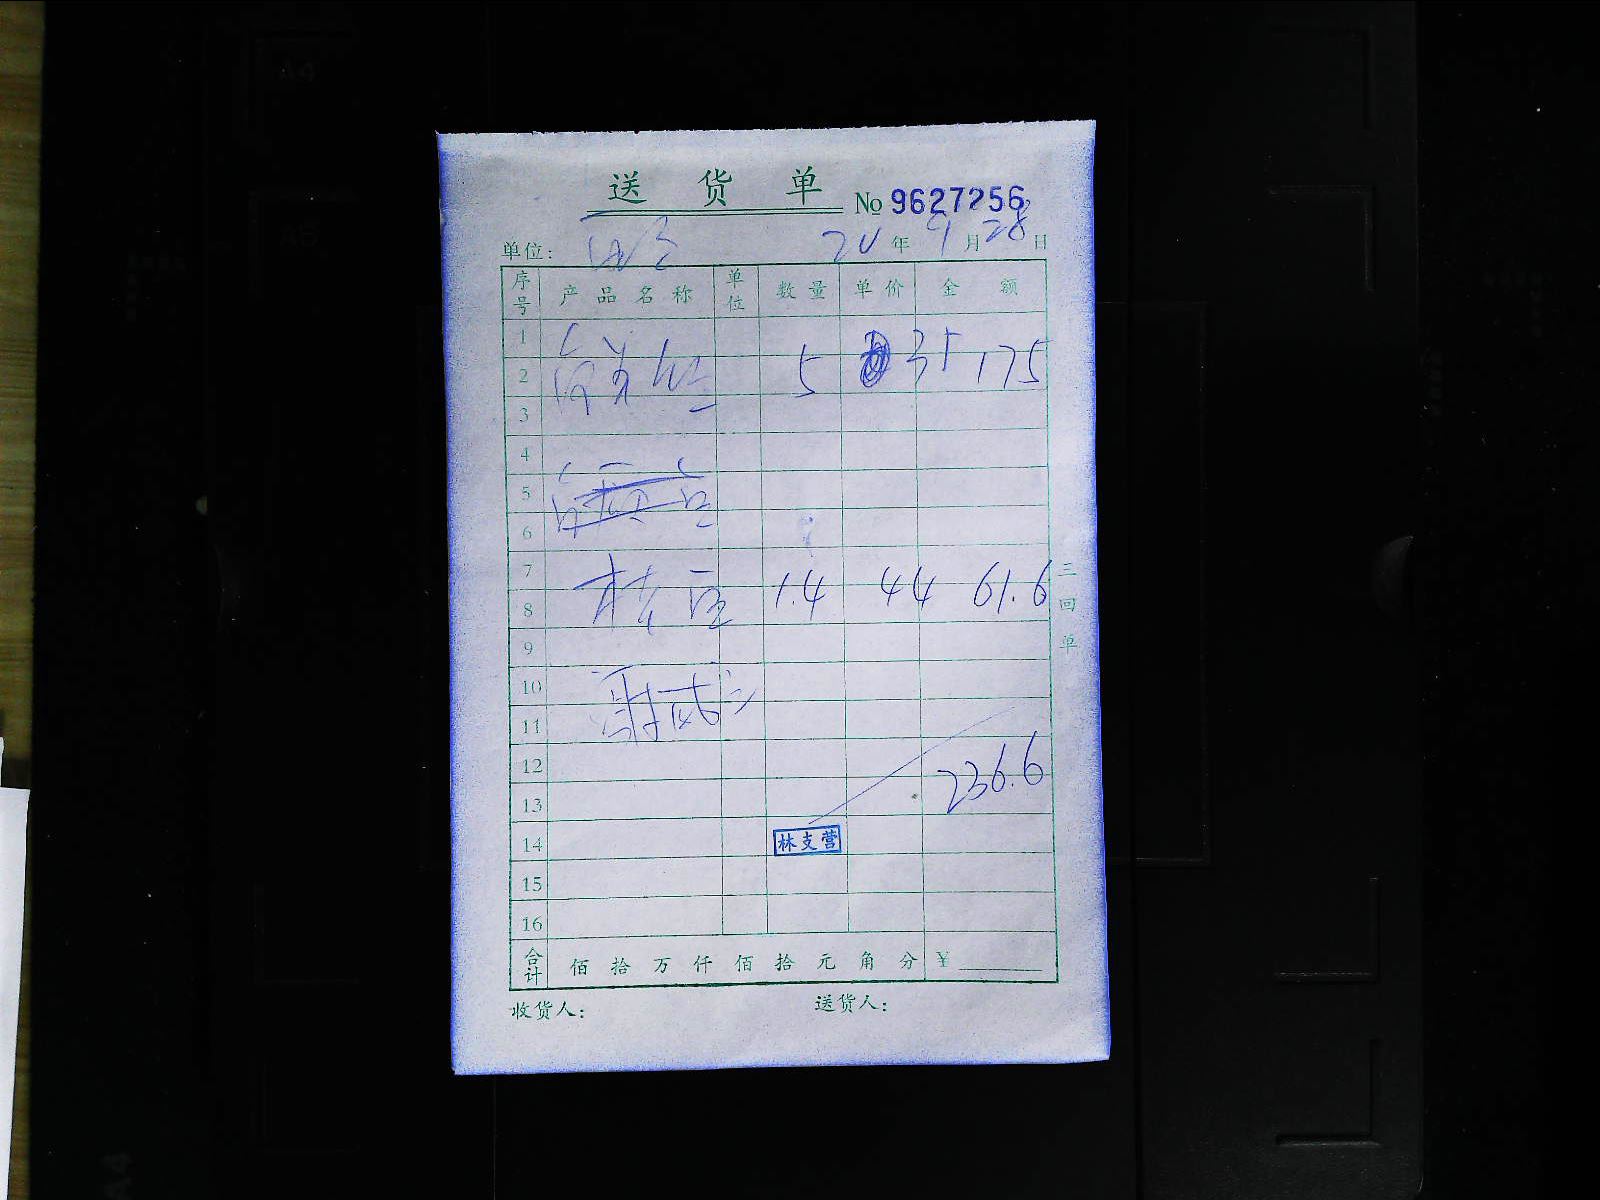 送货单 No 9627256
单位: 20年9月28日
序号 产品名称 单位 数量 单价 金额
1
2 5 35 175
3
4
5
6
7
8 1.4 44 61.6
9
10
11
12
13 236.6
14 林支营
15
16
合计 佰拾万仟佰拾元角分 ¥
收货人: 送货人:
三回单